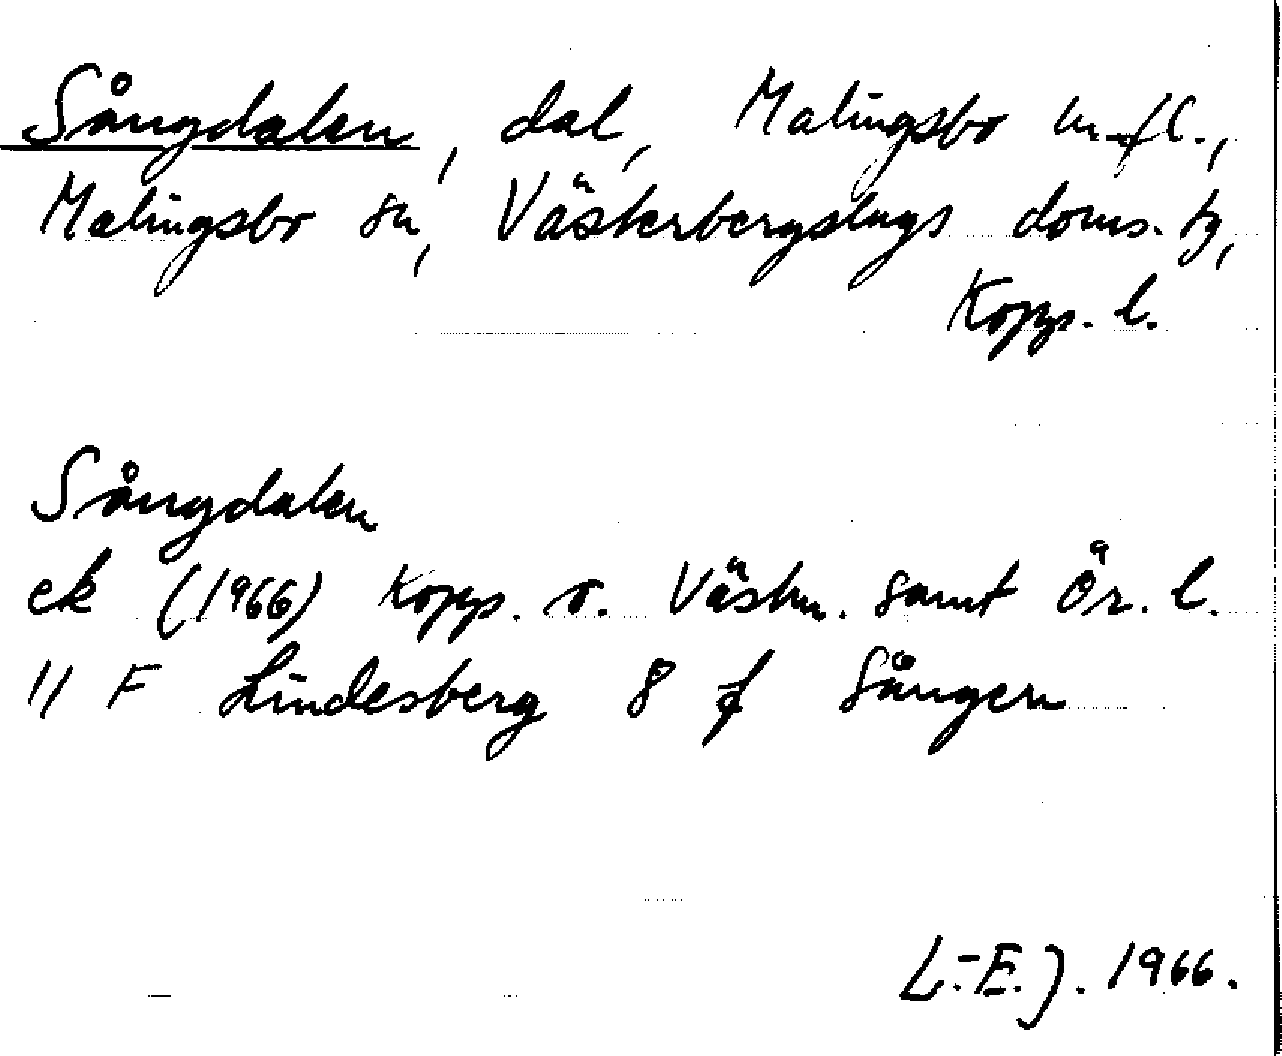 Sångdalen, dal, Malingsbo m.fl.,
Malingsbo sn, Västerbergslags doms. tg,
Kopp. l.
Sångdalen
ek (1966) Kopp. o. Västm. samt Ör. l.
11 F Lindesberg 8 f Sången
L.-E. J. 1966.